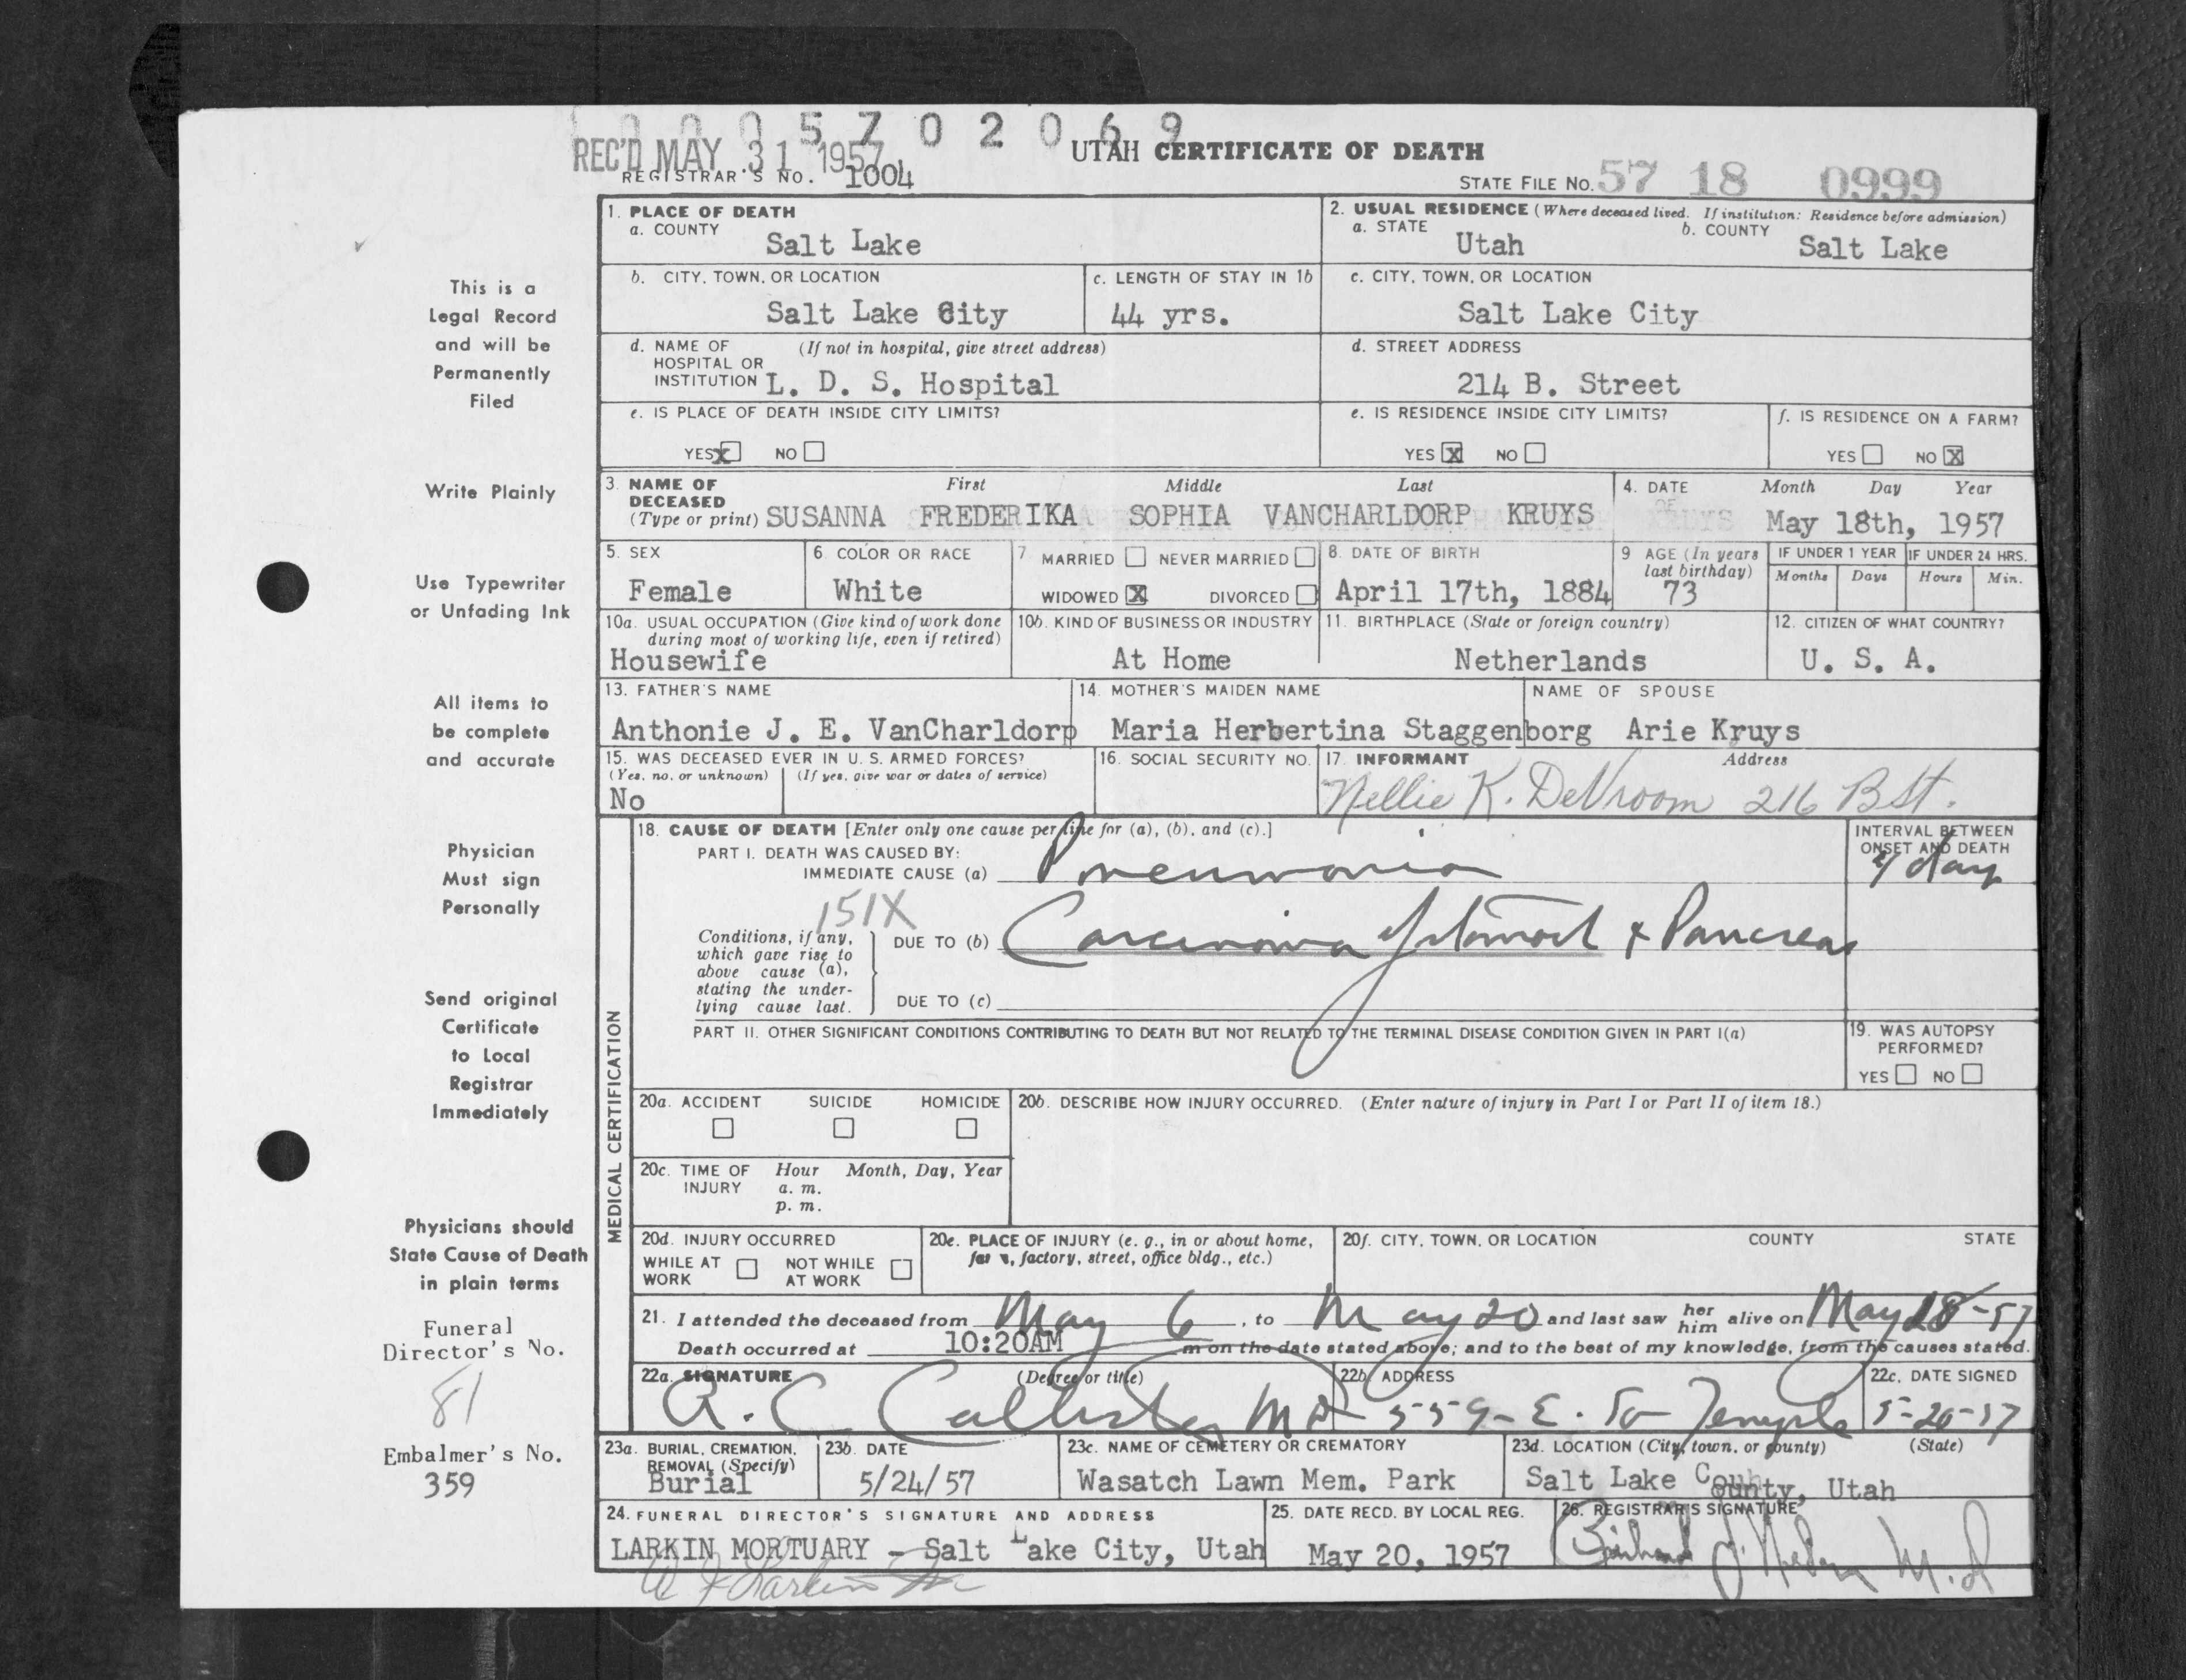 0 0 0 5 7 0 2 0 6 9
REC'D MAY 31 1957
UTAH CERTIFICATE OF DEATH
REGISTRAR'S NO. 1004
STATE FILE No. 57 18 0999
1. PLACE OF DEATH
a. COUNTY
Salt Lake
2. USUAL RESIDENCE (Where deceased lived. If institution: Residence before admission)
a. STATE
Utah
b. COUNTY
Salt Lake
b. CITY, TOWN, OR LOCATION
Salt Lake City
c. LENGTH OF STAY IN 1b
44 yrs.
c. CITY, TOWN, OR LOCATION
Salt Lake City
d. NAME OF HOSPITAL OR INSTITUTION
(If not in hospital, give street address)
L. D. S. Hospital
d. STREET ADDRESS
214 B. Street
e. IS PLACE OF DEATH INSIDE CITY LIMITS?
YES X NO
e. IS RESIDENCE INSIDE CITY LIMITS?
YES X NO
f. IS RESIDENCE ON A FARM?
YES NO X
3. NAME OF DECEASED
(Type or print)
First Middle Last
SUSANNA FREDERIKA SOPHIA VANCHARLDORP KRUYS
4. DATE OF
Month Day Year
May 18th, 1957
5. SEX
Female
6. COLOR OR RACE
White
7. MARRIED NEVER MARRIED
WIDOWED X DIVORCED
8. DATE OF BIRTH
April 17th, 1884
9 AGE (In years last birthday)
73
IF UNDER 1 YEAR
Months Days
IF UNDER 24 HRS.
Hours Min.
10a. USUAL OCCUPATION (Give kind of work done during most of working life, even if retired)
Housewife
10b. KIND OF BUSINESS OR INDUSTRY
At Home
11. BIRTHPLACE (State or foreign country)
Netherlands
12. CITIZEN OF WHAT COUNTRY?
U. S. A.
13. FATHER'S NAME
Anthonie J. E. VanCharldorp
14. MOTHER'S MAIDEN NAME
Maria Herbertina Staggenborg
NAME OF SPOUSE
Arie Kruys
15. WAS DECEASED EVER IN U. S. ARMED FORCES?
(Yes, no, or unknown) (If yes, give war or dates of service)
No
16. SOCIAL SECURITY NO.
17. INFORMANT Address
Nellie K. DeVroom 216 B St.
MEDICAL CERTIFICATION
18. CAUSE OF DEATH [Enter only one cause per line for (a), (b), and (c).]
PART I. DEATH WAS CAUSED BY:
IMMEDIATE CAUSE (a) Pneumonia
INTERVAL BETWEEN ONSET AND DEATH
4 days
151X
Conditions, if any, which gave rise to above cause (a), stating the underlying cause last.
DUE TO (b) Carcinoma of stomach & Pancreas
DUE TO (c)
PART II. OTHER SIGNIFICANT CONDITIONS CONTRIBUTING TO DEATH BUT NOT RELATED TO THE TERMINAL DISEASE CONDITION GIVEN IN PART I(a)
19. WAS AUTOPSY PERFORMED?
YES NO
20a. ACCIDENT SUICIDE HOMICIDE
20b. DESCRIBE HOW INJURY OCCURRED. (Enter nature of injury in Part I or Part II of item 18.)
20c. TIME OF INJURY
Hour Month, Day, Year
a. m.
p. m.
20d. INJURY OCCURRED
WHILE AT WORK NOT WHILE AT WORK
20e. PLACE OF INJURY (e. g., in or about home, farm, factory, street, office bldg., etc.)
20f. CITY, TOWN, OR LOCATION COUNTY STATE
21. I attended the deceased from May 6, to May 20 and last saw her him alive on May 18-57
Death occurred at 10:20AM m on the date stated above; and to the best of my knowledge, from the causes stated.
22a. SIGNATURE (Degree or title)
R. C. Callister MD
22b. ADDRESS
559 - E. So Temple
22c. DATE SIGNED
5-20-57
23a. BURIAL, CREMATION, REMOVAL (Specify)
Burial
23b. DATE
5/24/57
23c. NAME OF CEMETERY OR CREMATORY
Wasatch Lawn Mem. Park
23d. LOCATION (City, town, or county) (State)
Salt Lake County, Utah
24. FUNERAL DIRECTOR'S SIGNATURE AND ADDRESS
LARKIN MORTUARY - Salt Lake City, Utah
25. DATE RECD. BY LOCAL REG.
May 20, 1957
26. REGISTRAR'S SIGNATURE
M.D
This is a
Legal Record
and will be
Permanently
Filed
Write Plainly
Use Typewriter
or Unfading Ink
All items to
be complete
and accurate
Physician
Must sign
Personally
Send original
Certificate
to Local
Registrar
Immediately
Physicians should
State Cause of Death
in plain terms
Funeral
Director's No.
81
Embalmer's No.
359